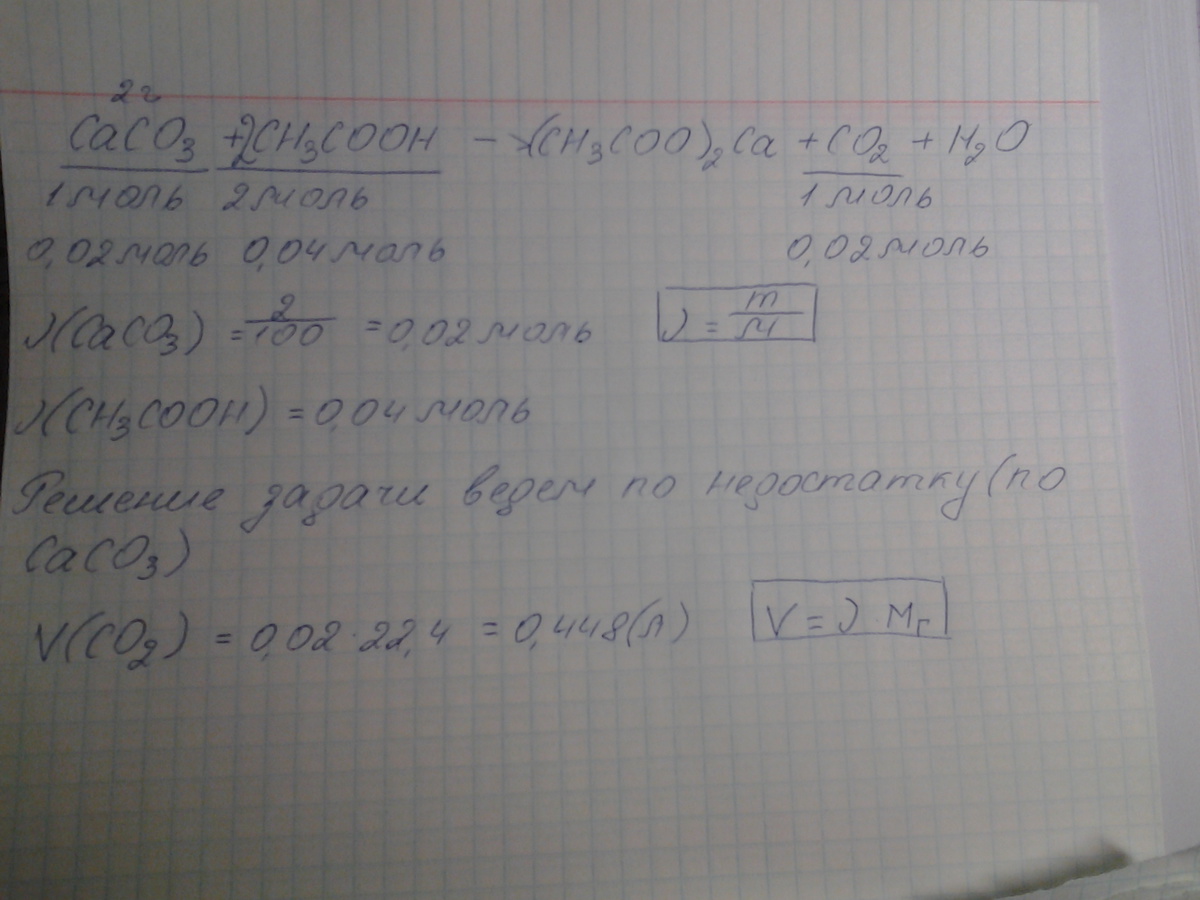 2г
CaCO₃ + 2CH₃COOH → (CH₃COO)₂Ca + CO₂ + H₂O
1 моль 2 моль 1 моль
0,02 моль 0,04 моль 0,02 моль
ν(CaCO₃) = 2/100 = 0,02 моль ν = m/M
ν(CH₃COOH) = 0,04 моль
Решение задачи ведем по недостатку (по
CaCO₃)
V(CO₂) = 0,02·22,4 = 0,448 (л) V = ν · Mr